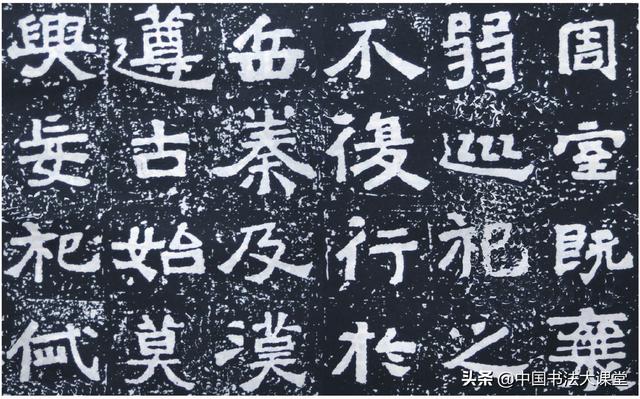 周室既棄
弱巡祀之
不復行於
岳秦及漢
遵古始莫
興妄祀
头条 @中国书法大课堂